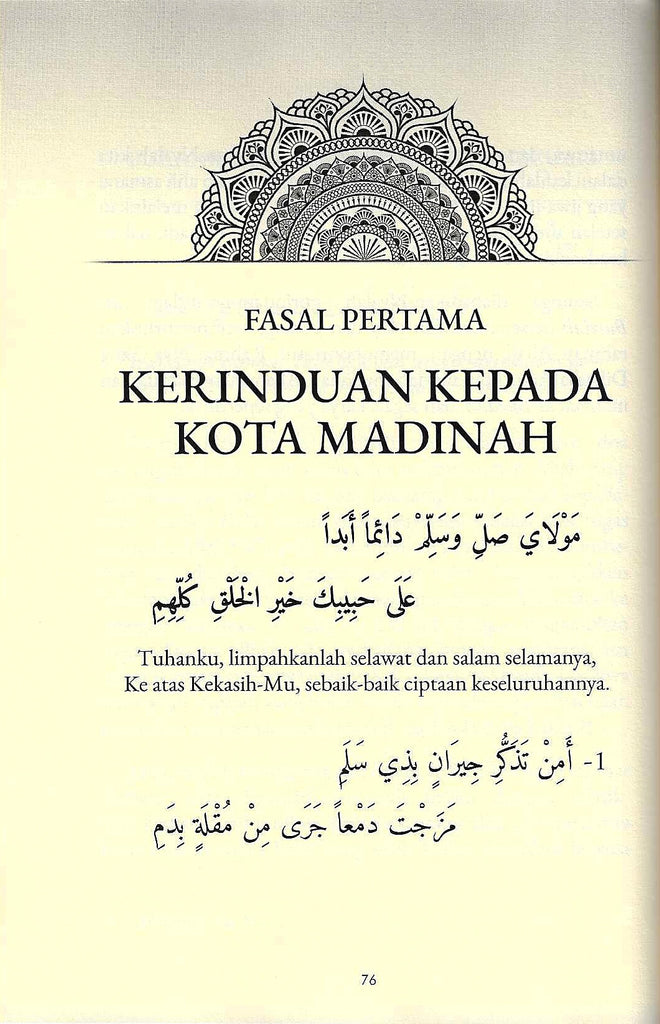 FASAL PERTAMA
KERINDUAN KEPADA
KOTA MADINAH
مَوْلَايَ صَلِّ وَسَلِّمْ دَائِماً أَبَداً
عَلَى حَبِيبِكَ خَيْرِ الْخَلْقِ كُلِّهِمِ
Tuhanku, limpahkanlah selawat dan salam selamanya,
Ke atas Kekasih-Mu, sebaik-baik ciptaan keseluruhannya.
1- أَمِنْ تَذَكُّرِ جِيرَانٍ بِذِي سَلَمِ
مَزَجْتَ دَمْعاً جَرَى مِنْ مُقْلَةٍ بِدَمِ
76